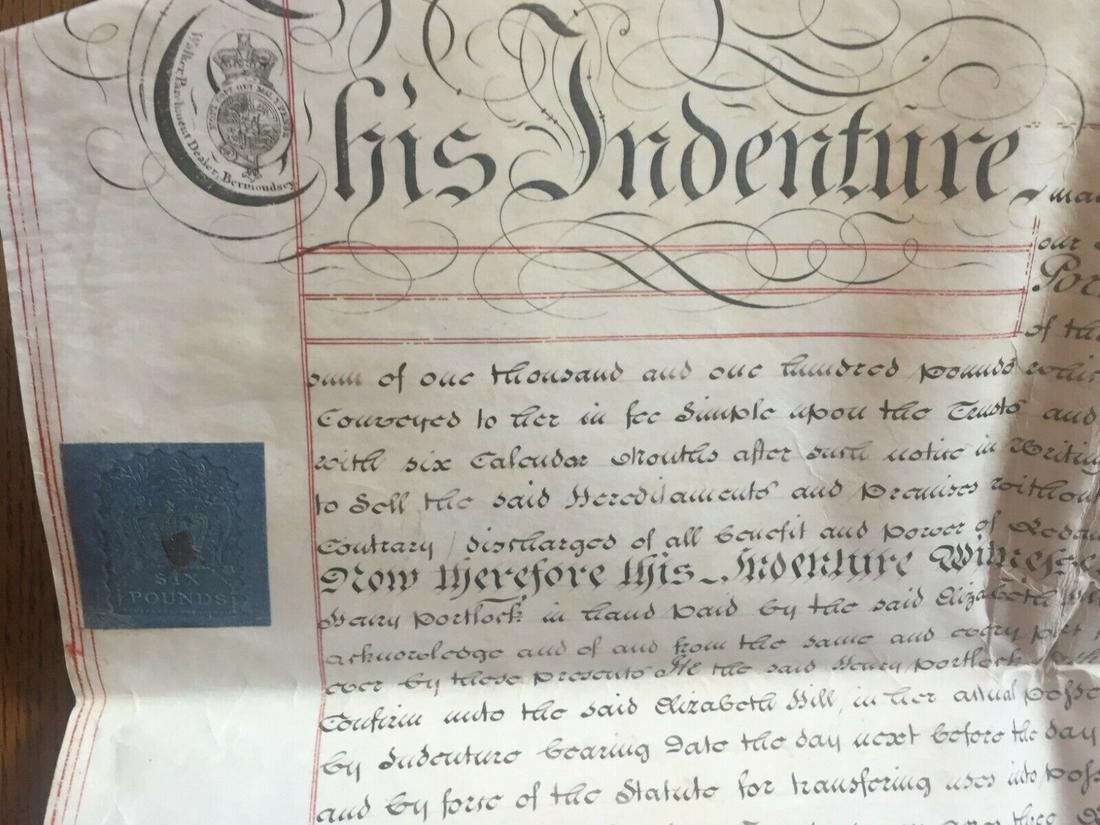 Walker, Parchment Dealer, Bermondsey
This Indenture
our
of the
sum of one thousand and one hundred pounds
Conveyed to her in fee Simple upon the Trusts and
with six Calendar Months after such notice in Writing
to Sell the said Hereditaments and Premises without
Contrary / discharged of all benefit and power of
Now therefore this Indenture
Henry Portlock in hand paid by the said Elizabeth
acknowledge and of and from the same and every part
ever by these presents He the said Henry Portlock
Confirm unto the said Elizabeth Hill, in her actual
by Indenture bearing Date the day next before the day
and by force of the Statute for transfering uses into
SIX
POUNDS